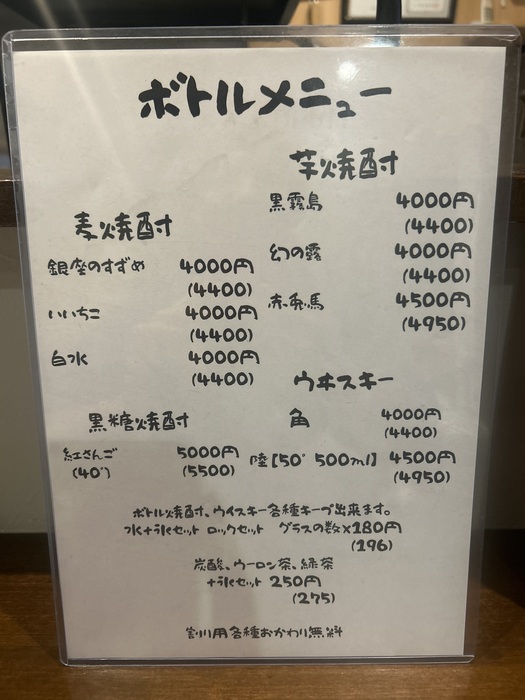 ボトルメニュー
麦焼酎
銀座のすずめ 4000円
(4400)
いいちこ 4000円
(4400)
白水 4000円
(4400)
芋焼酎
黒霧島 4000円
(4400)
幻の露 4000円
(4400)
赤兎馬 4500円
(4950)
黒糖焼酎
紅さんご 5000円
(40°) (5500)
ウヰスキー
角 4000円
(4400)
陸【50° 500ml】 4500円
(4950)
ボトル焼酎、ウイスキー各種キープ出来ます。
水+氷セット ロックセット グラスの数×180円
(196)
炭酸、ウーロン茶、緑茶
+氷セット 250円
(275)
割り用各種おかわり無料